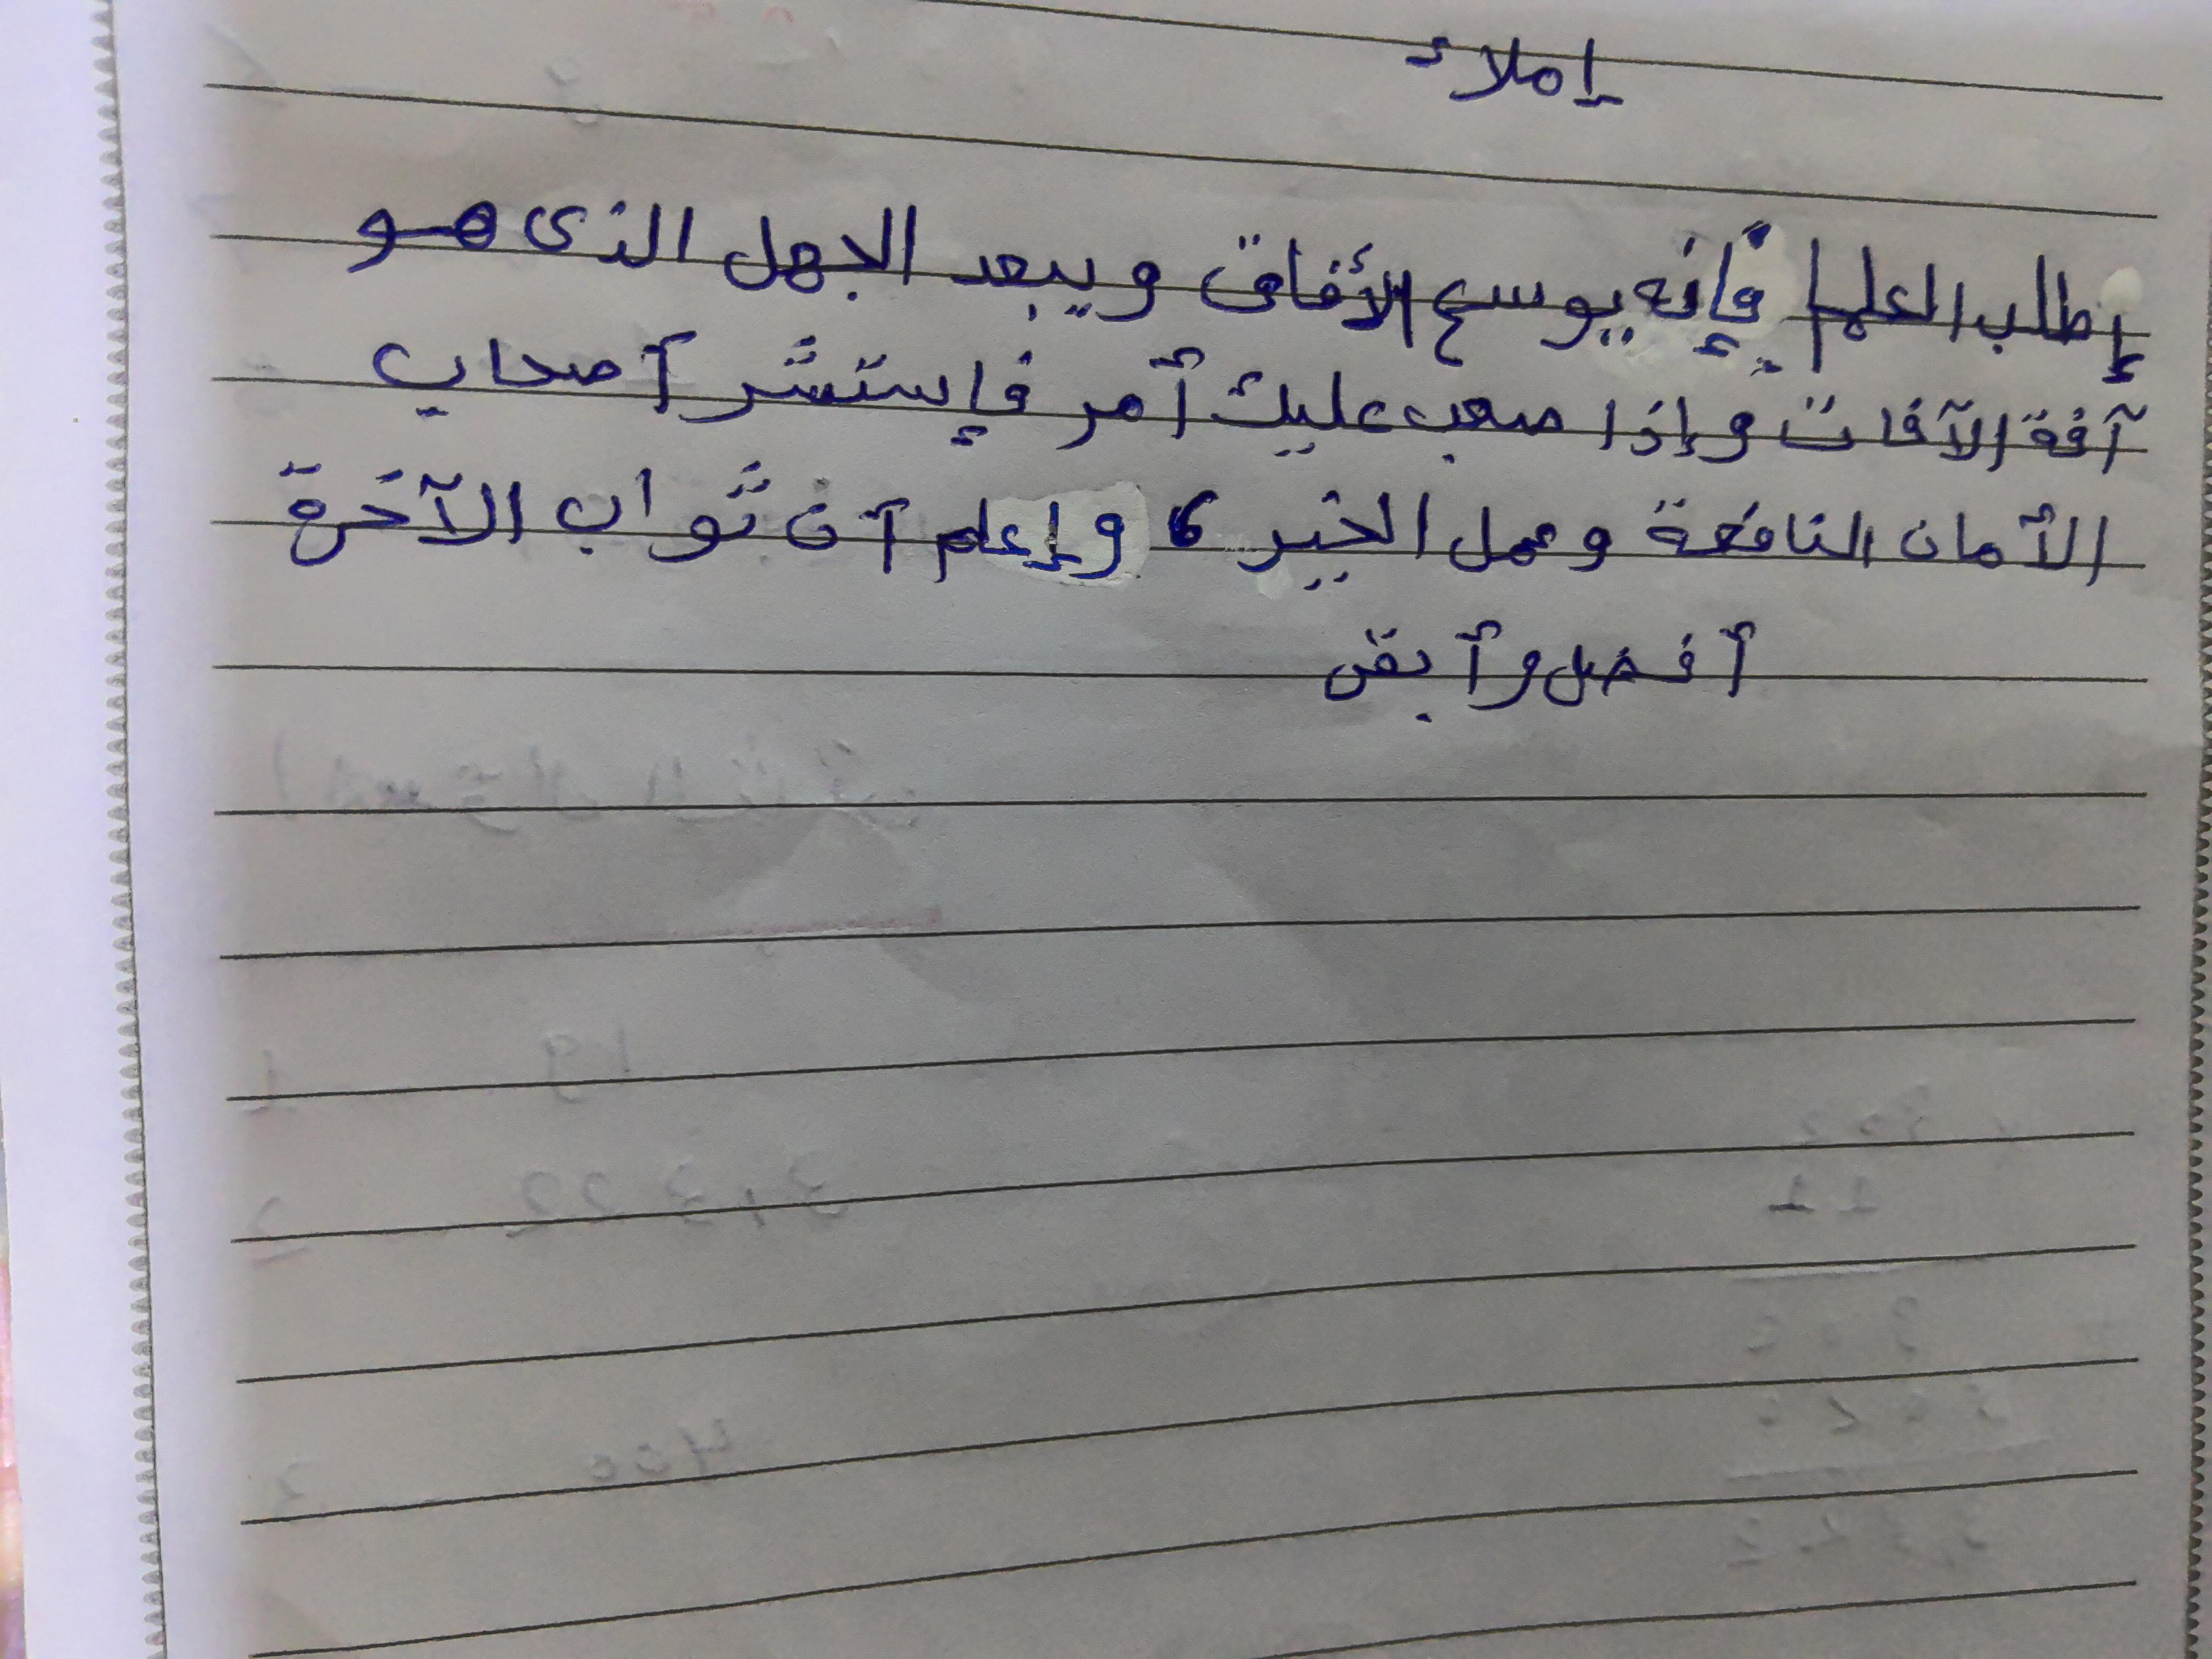 إملاء
إطلب العلم فإنه يوسع الأفاق ويبعد الجهل الذى هو
آفة الآفات وإذا صعب عليك أمر فإستشر أصحاب
الأمان النافعة وعمل الخير، وإعلم أن ثواب الآخرة
أفضل وأبقى